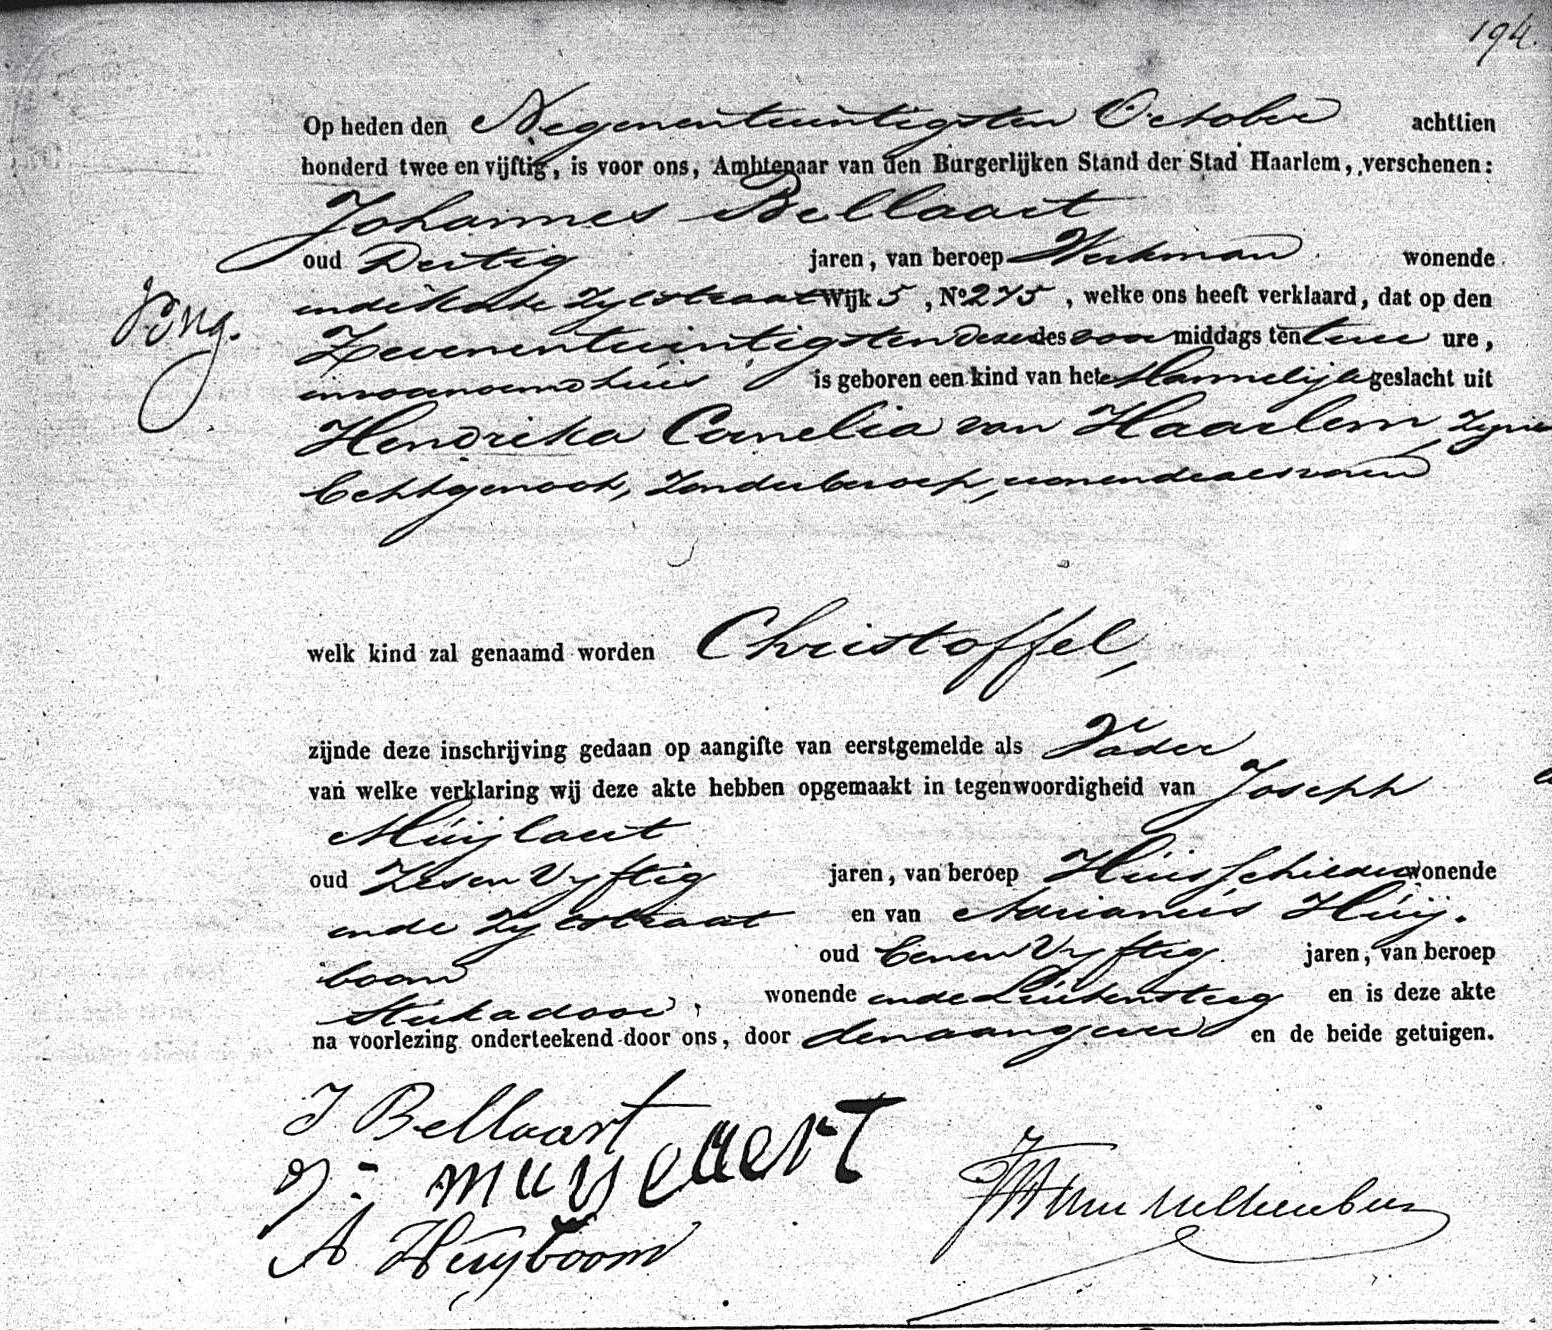 194.
Op heden den Negenentwintigsten October achttien
honderd twee en vijftig, is voor ons, Ambtenaar van den Burgerlijken Stand der Stad Haarlem, verschenen:
Johannes Bellaart
oud Dertig jaren, van beroep Werkman wonende
in de Zylstraat Wijk 5, No 275, welke ons heeft verklaard, dat op den
Zevenentwintigsten dezer des voor middags ten twee ure,
in voornoemd huis is geboren een kind van het Mannelijk geslacht uit
Hendrika Cornelia van Haarlem zyne
Echtgenoot, zonder beroep, wonende als voren
welk kind zal genaamd worden Christoffel,
zijnde deze inschrijving gedaan op aangifte van eerstgemelde als Vader
van welke verklaring wij deze akte hebben opgemaakt in tegenwoordigheid van Joseph
Muijlaert
oud Zes en Vyftig jaren, van beroep Huisschilder wonende
in de Zylstraat en van Adrianus Huij-
boom oud Een en Vyftig jaren, van beroep
Stukadoor, wonende in de steeg en is deze akte
na voorlezing onderteekend door ons, door den aangever en de beide getuigen.
J Bellaart
J= muylaert
A Huyboom